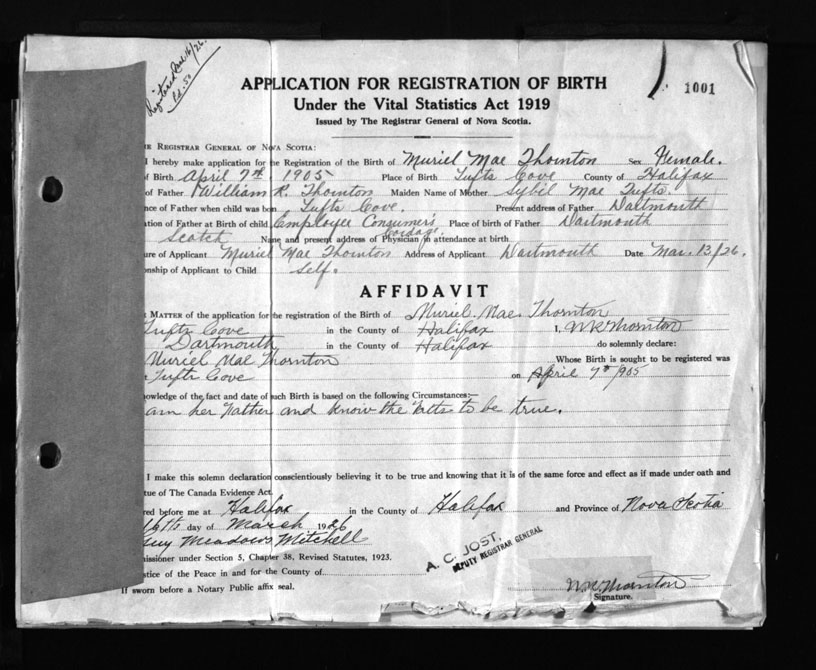 Registered
Pd. 50
APPLICATION FOR REGISTRATION OF BIRTH
1001
Under the Vital Statistics Act 1919
Issued by The Registrar General of Nova Scotia.
HE REGISTRAR GENERAL OF NOVA SCOTIA:
I hereby make application for the Registration of the Birth of Muriel Mae Thornton Sex Female.
of Birth April 7th 1905 Place of Birth Tufts Cove County of Halifax
of Father William R. Thornton Maiden Name of Mother Sybil Mae Tufts.
nce of Father when child was born Tufts Cove. Present address of Father Dartmouth
ation of Father at Birth of child Employee Consumer's Cordage Place of birth of Father Dartmouth
Scotch Name and present address of Physician in attendance at birth
ure of Applicant Muriel Mae Thornton Address of Applicant Dartmouth Date Mar. 13/26.
onship of Applicant to Child Self.
AFFIDAVIT
MATTER of the application for the registration of the Birth of Muriel Mae Thornton
Tufts Cove in the County of Halifax I, W R Thornton
Dartmouth in the County of Halifax do solemnly declare:
Muriel Mae Thornton Whose Birth is sought to be registered was
Tufts Cove on April 7th 1905
nowledge of the fact and date of such Birth is based on the following Circumstances:—
am her Father and know the fatts to be true.
I make this solemn declaration conscientiously believing it to be true and knowing that it is of the same force and effect as if made under oath and
tue of The Canada Evidence Act.
red before me at Halifax in the County of Halifax and Province of Nova Scotia
16th day of March 1926
Guy Meadows Mitchell
A. C. JOST,
DEPUTY REGISTRAR GENERAL
missioner under Section 5, Chapter 38, Revised Statutes, 1923.
stice of the Peace in and for the County of
W R Thornton
If sworn before a Notary Public affix seal.
Signature.